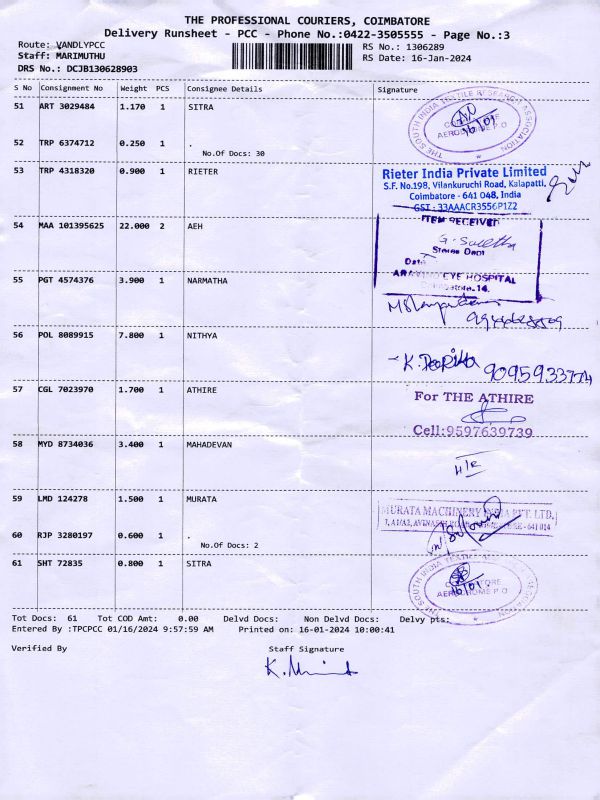 THE PROFESSIONAL COURIERS, COIMBATORE
Delivery Runsheet - PCC - Phone No.:0422-3505555 - Page No.:3
Route: VANDLYPCC
RS No.: 1306289
Staff: MARIMUTHU
RS Date: 16-Jan-2024
DRS No.: DCJB130628903
S No Consignment No Weight PCS Consignee Details Signature
51 ART 3029484 1.170 1 SITRA
THE SOUTH INDIA TEXTILE RESEARCH ASSOCIATION
AERODROME P.O
16/01
52 TRP 6374712 0.250 1 .
No.Of Docs: 30
53 TRP 4318320 0.900 1 RIETER
Rieter India Private Limited
S.F. No.198, Vilankuruchi Road, Kalapatti,
Coimbatore - 641 048, India
GST : 33AAACR3556P1Z2
54 MAA 101395625 22.000 2 AEH
ITEM RECEIVED
Stores Dept
Date
ARAVIND EYE HOSPITAL
Coimbatore-14.
55 PGT 4574376 3.900 1 NARMATHA
56 POL 8089915 7.800 1 NITHYA
9095933774
57 CGL 7023970 1.700 1 ATHIRE
For THE ATHIRE
Cell:9597639739
58 MYD 8734036 3.400 1 MAHADEVAN
59 LMD 124278 1.500 1 MURATA
MURATA MACHINERY INDIA PVT. LTD,
60 RJP 3280197 0.600 1 .
No.Of Docs: 2
61 SHT 72835 0.800 1 SITRA
AERODROME P.O
16/01
Tot Docs: 61 Tot COD Amt: 0.00 Delvd Docs: Non Delvd Docs: Delvy pts:
Entered By :TPCPCC 01/16/2024 9:57:59 AM Printed on: 16-01-2024 10:00:41
Verified By Staff Signature